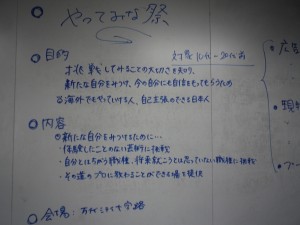 やってみな祭
○目的
対象
挑戦してみることの大切さを知り、
新たな自分をみつけ、今の自分にも自信をもってもらうため
海外でもやっていける人、自己主張のできる日本人
○内容
◎新たな自分をみつけるために…
・体験したことのない芸術に挑戦
・自分とはちがう職種、将来就こうとは思っていない職種に挑戦
・その道のプロに教わることができる場を提供
○会場：
広告